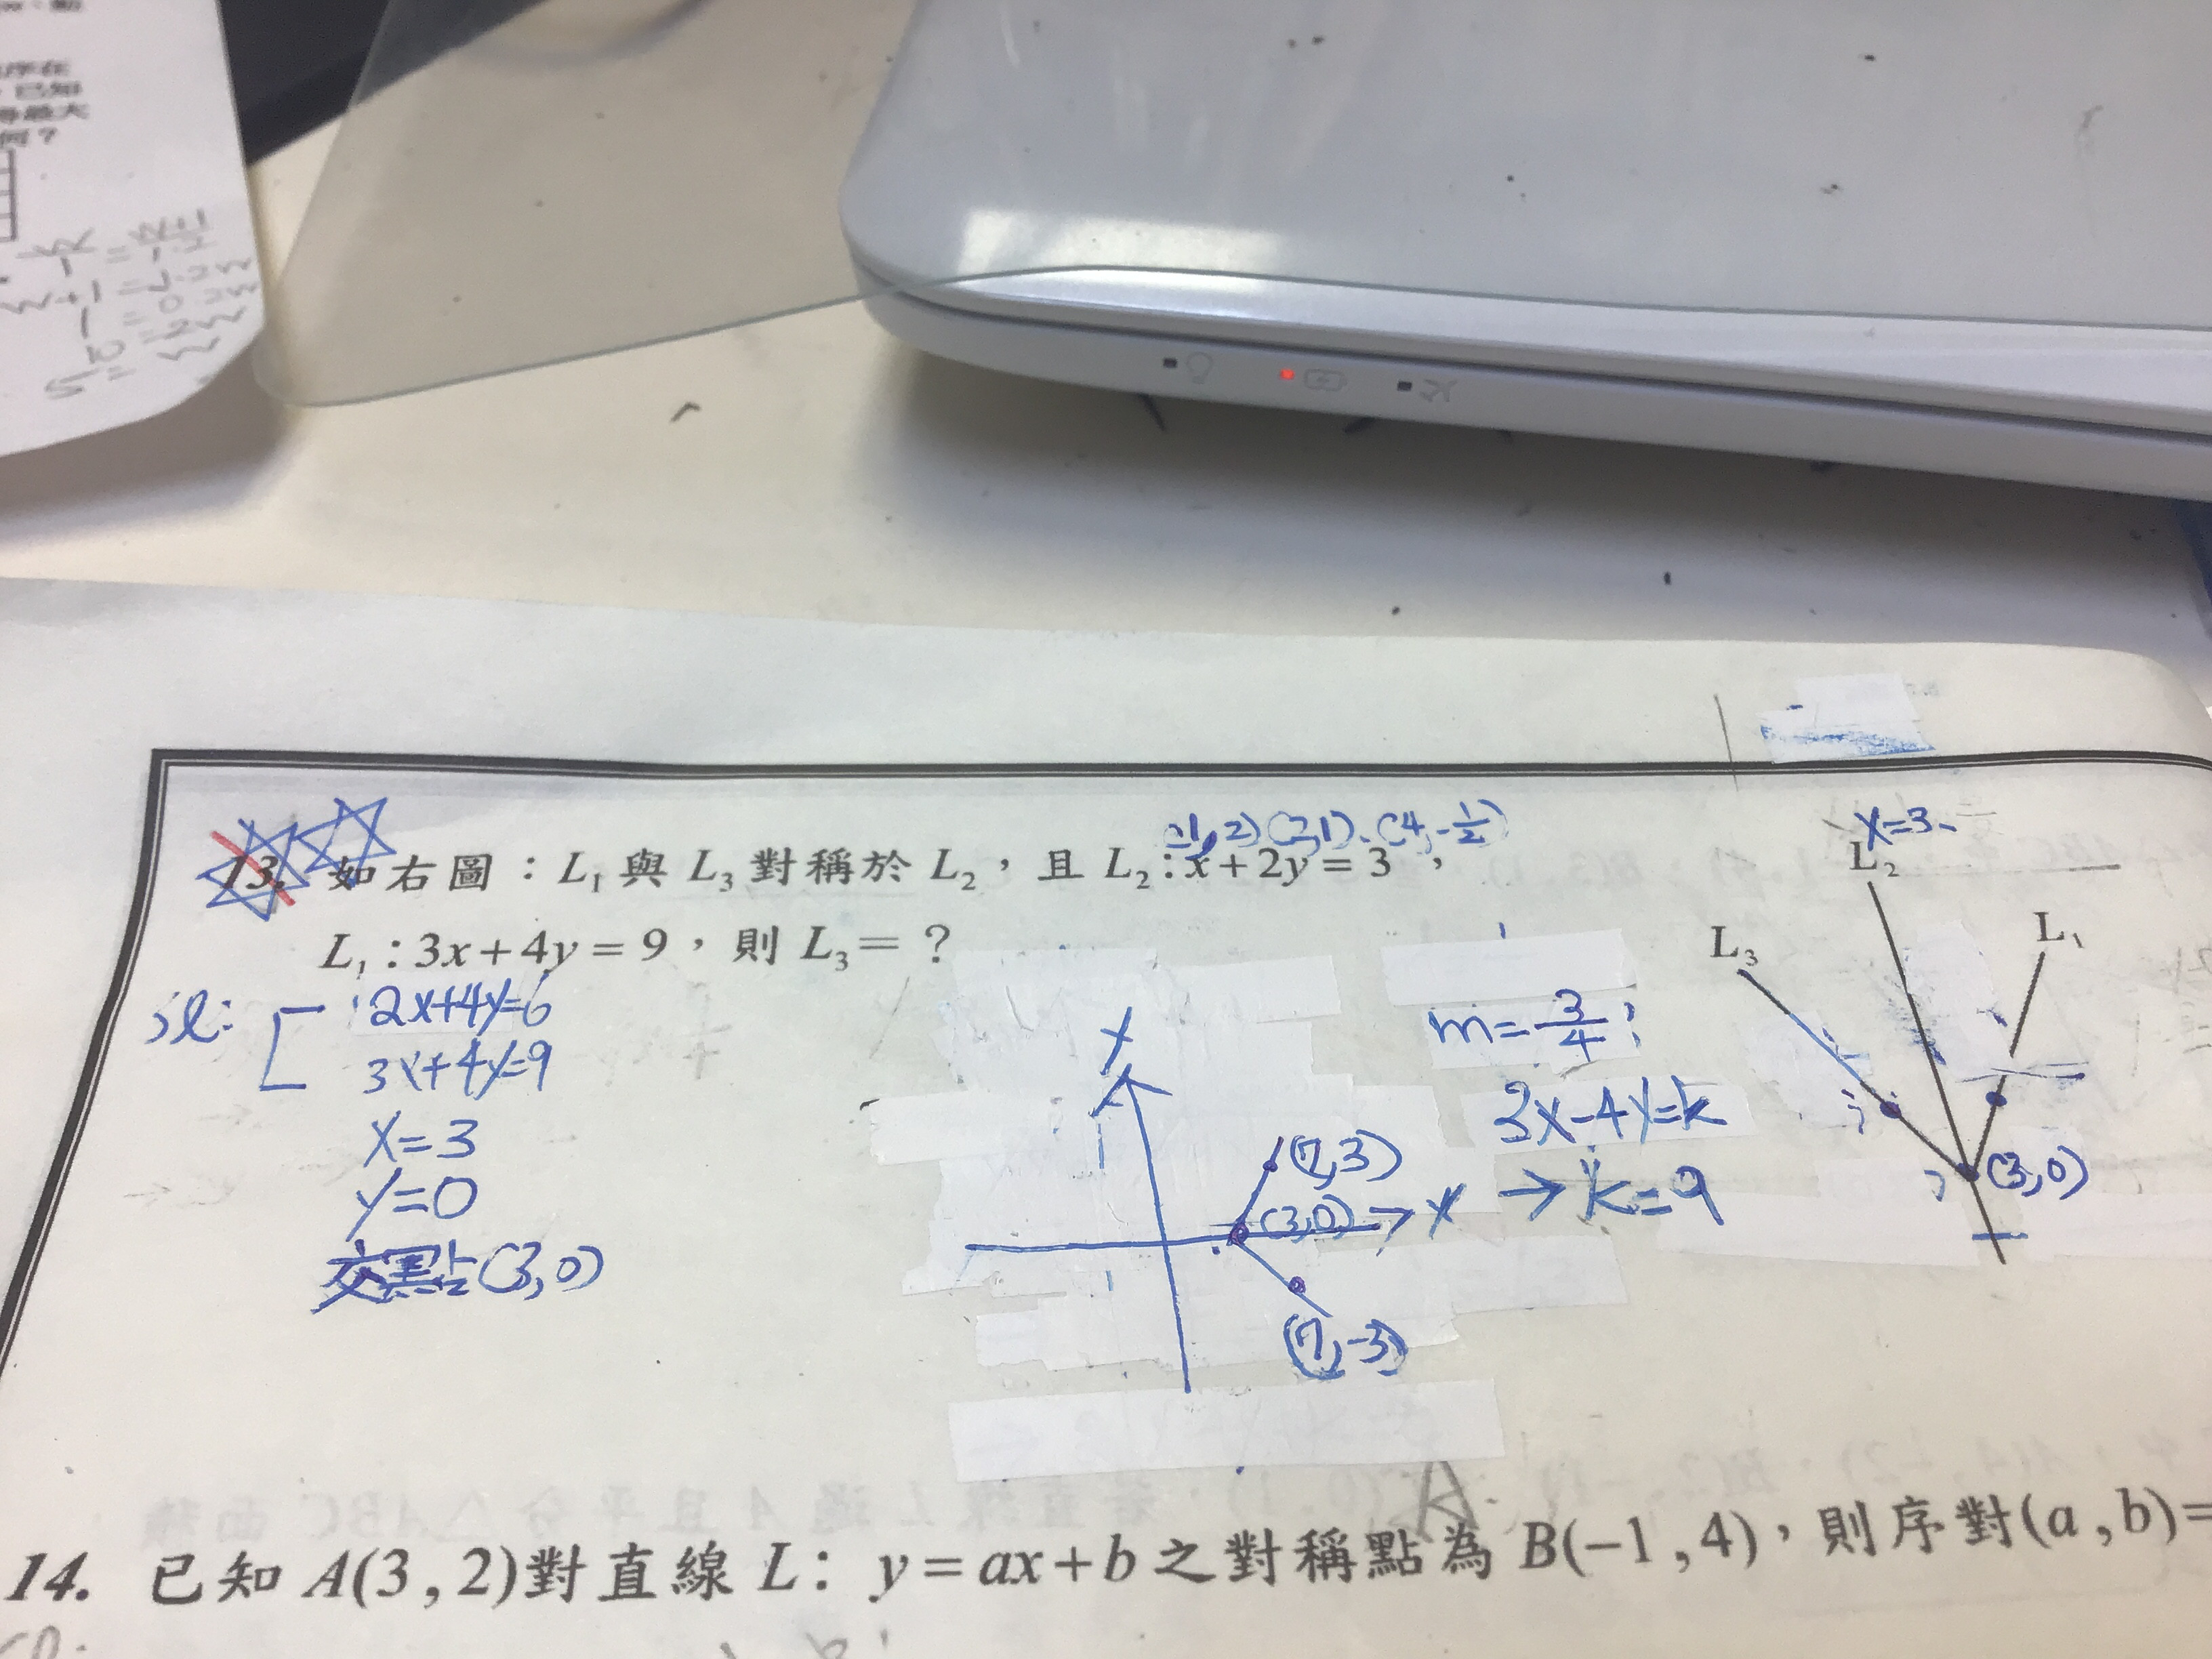 序在
已知
最大
何？
(2,1)、(4,-1/2)
13. 如右圖：L₁與L₃對稱於L₂，且L₂:x+2y=3，
L₁:3x+4y=9，則L₃=？
2x+4y=6
3x+4y=9
x=3
y=0
交點(3,0)
y
(7,3)
(3,0)
x
(7,-3)
m=3/4
3x-4y=k
→k=9
x=3
L₂
L₃
L₁
(3,0)
14. 已知A(3,2)對直線L：y=ax+b之對稱點為B(-1,4)，則序對(a,b)=